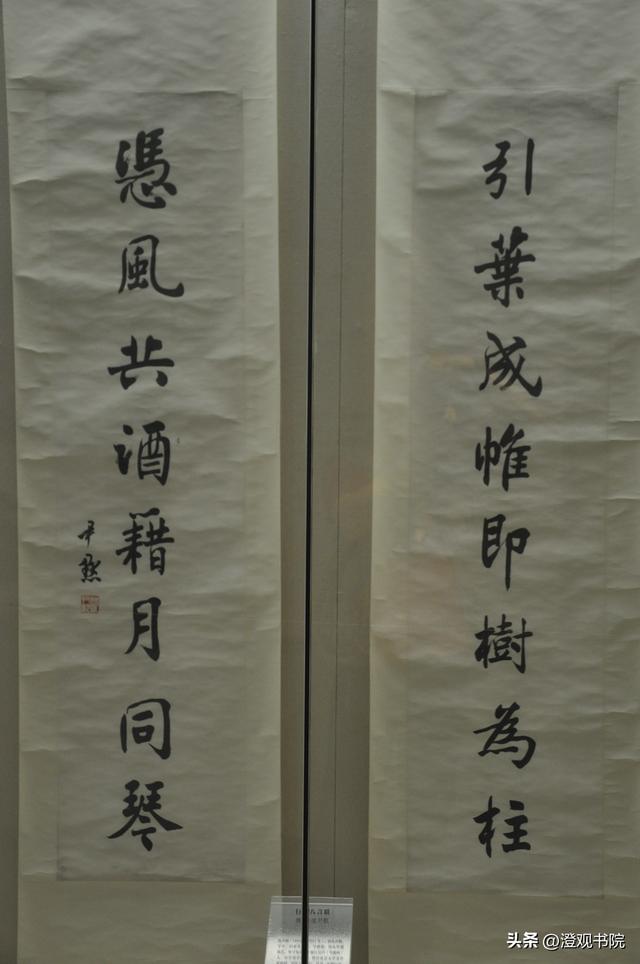 引葉成帷即樹為柱
憑風共酒籍月同琴
尹默
头条 @澄观书院